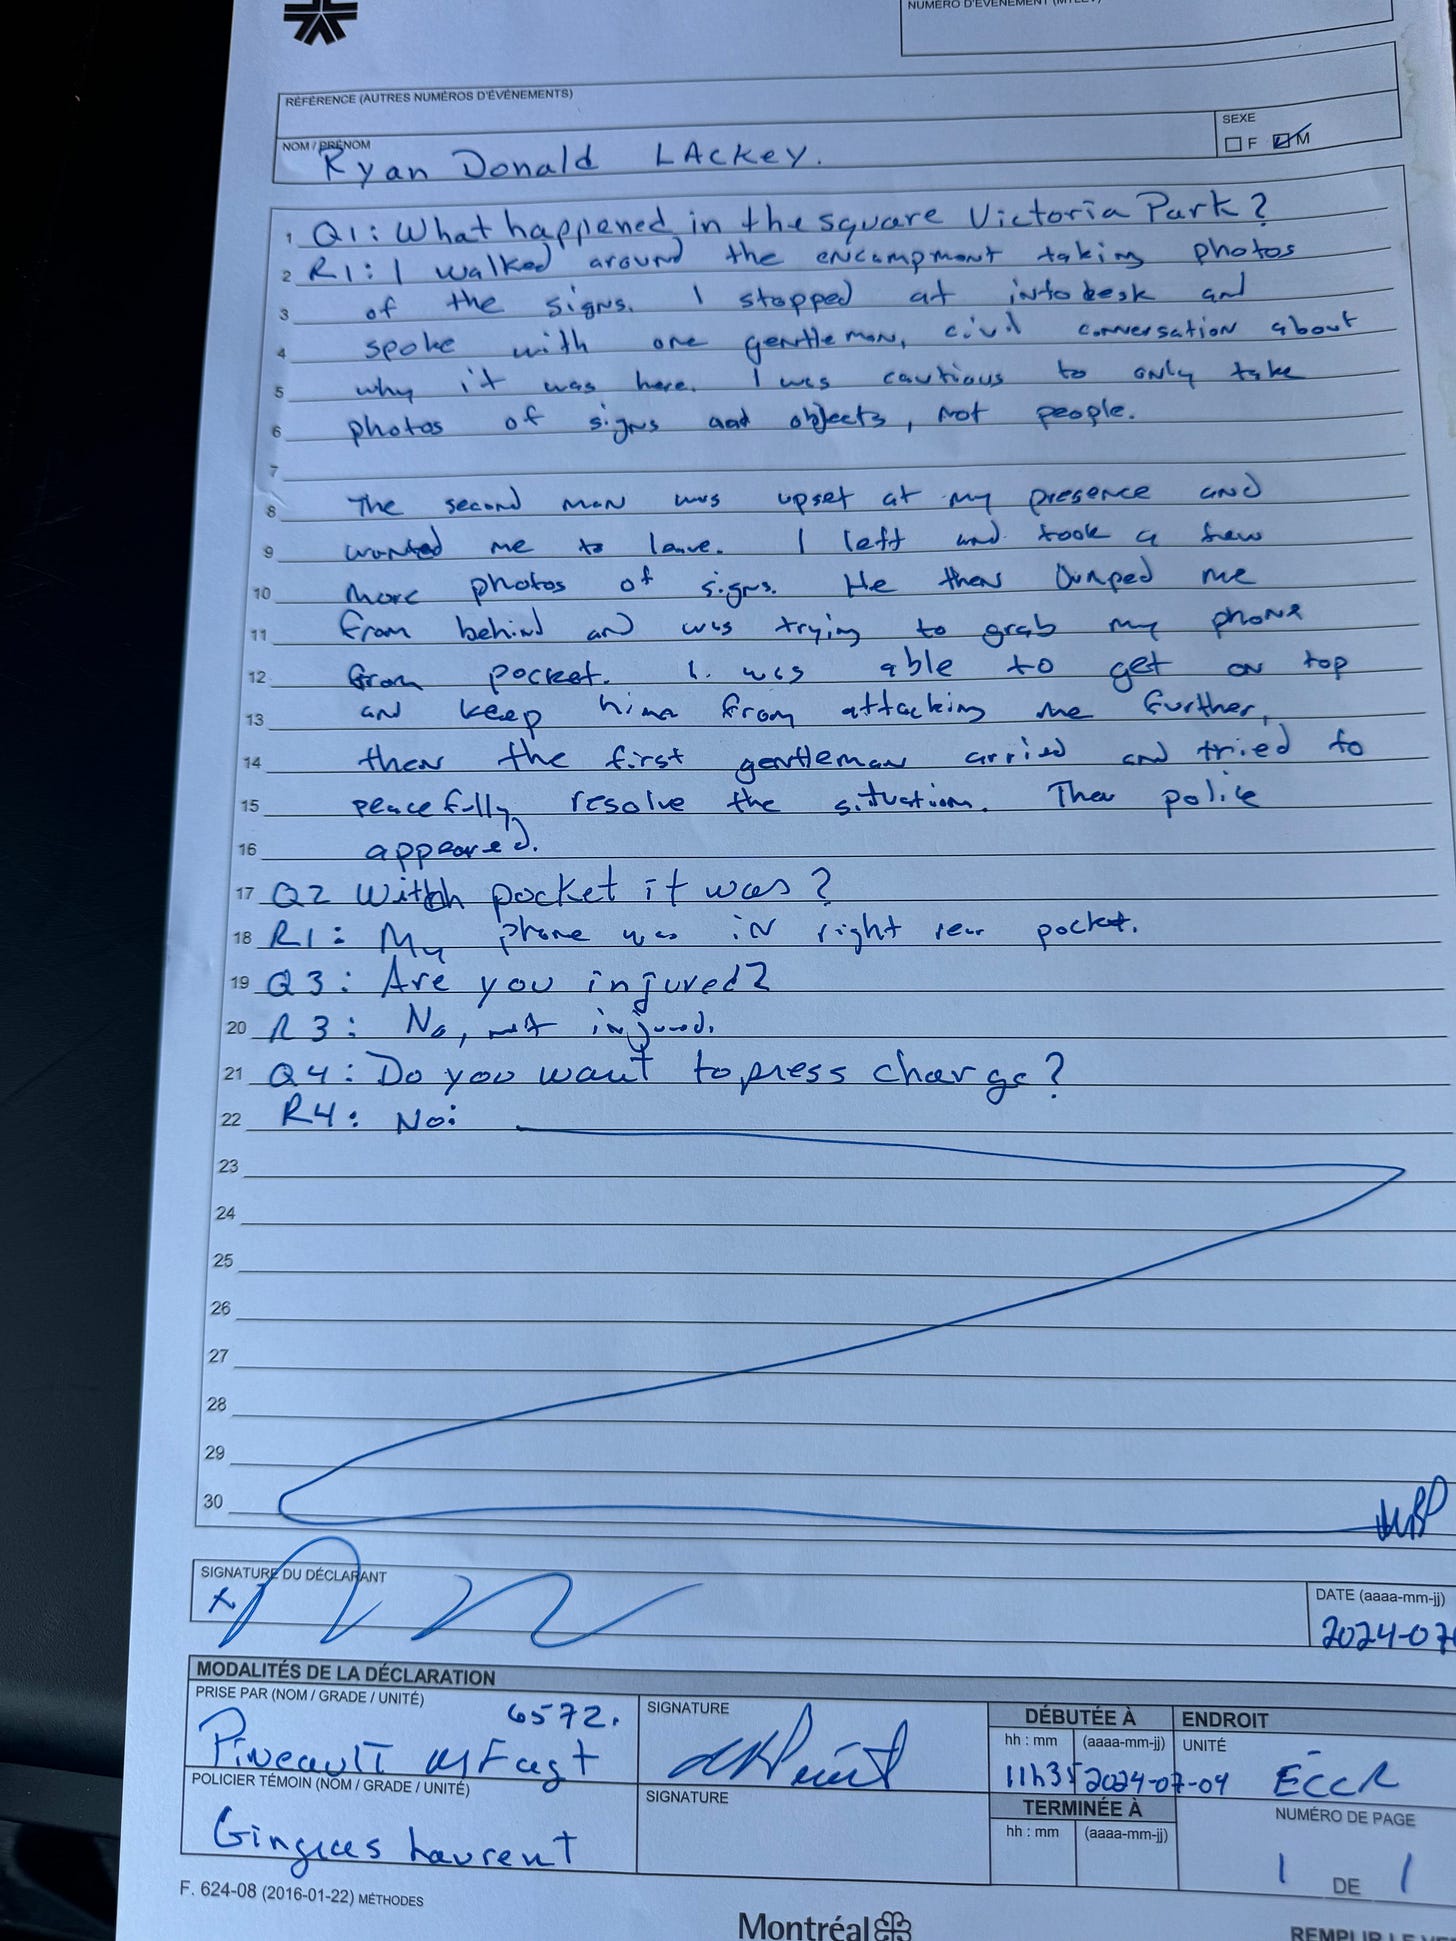 NUMÉRO D'ÉVÉNEMENT
RÉFÉRENCE (AUTRES NUMÉROS D'ÉVÉNEMENTS)
NOM / PRÉNOM
SEXE
Ryan Donald LACKEY.
F M
1 Q1: What happened in the square Victoria Park?
2 R1: I walked around the encampment taking photos
3 of the signs. I stopped at info desk and
4 spoke with one gentleman, civil conversation about
5 why it was here. I was cautious to only take
6 photos of signs and objects, not people.
7
8 The second man was upset at my presence and
9 wanted me to leave. I left and took a few
10 more photos of signs. He then jumped me
11 from behind and was trying to grab my phone
12 from pocket. I was able to get on top
13 and keep him from attacking me further,
14 then the first gentleman arrived and tried to
15 peacefully resolve the situation. Then police
16 appeared.
17 Q2 Witch pocket it was?
18 R1: My phone was in right rear pocket.
19 Q3: Are you injured?
20 R3: No, not injured.
21 Q4: Do you want to press charge?
22 R4: No:
23
24
25
26
27
28
29
30
SIGNATURE DU DÉCLARANT
x
DATE (aaaa-mm-jj)
2024-07
MODALITÉS DE LA DÉCLARATION
PRISE PAR (NOM / GRADE / UNITÉ)
6572.
Pineault
SIGNATURE
DÉBUTÉE À
hh : mm (aaaa-mm-jj)
11h35 2024-07-04
ENDROIT
UNITÉ
ECCR
POLICIER TÉMOIN (NOM / GRADE / UNITÉ)
Gingras Laurent
SIGNATURE
TERMINÉE À
hh : mm (aaaa-mm-jj)
NUMÉRO DE PAGE
1 DE 1
F. 624-08 (2016-01-22) MÉTHODES
Montréal
REMPLIR LE